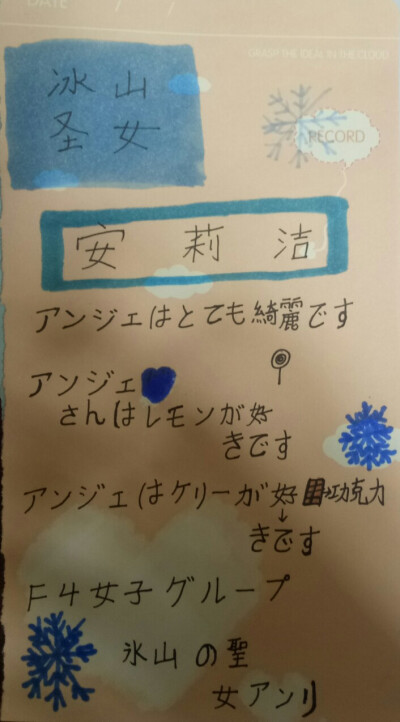 DATE / /
GRASP THE IDEAL IN THE CLOUD
冰山
圣女
RECORD
安莉洁
アンジェはとても綺麗です
アンジェ
さんはレモンが好
きです
アンジェはケリーが好 巧克力
きです
F4女子グループ
氷山の聖
女アンリ